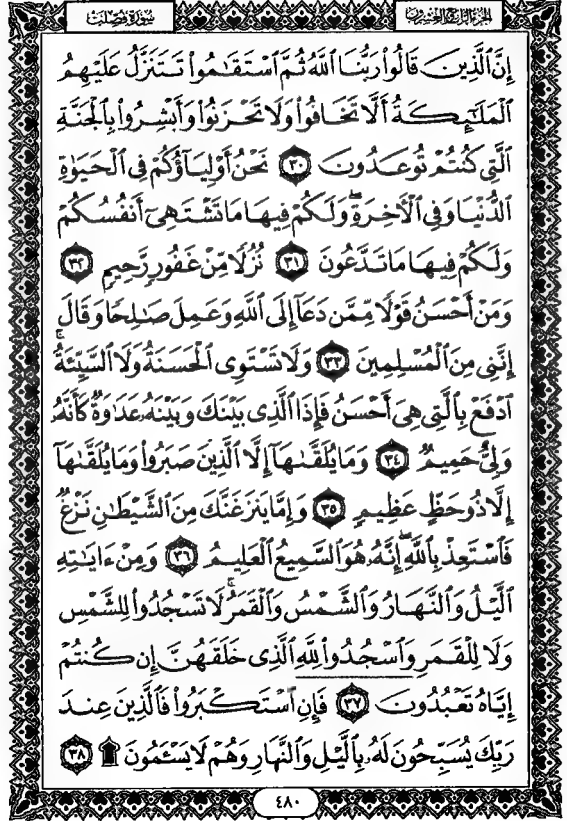 سُورَةُ فُصِّلَتْ
الجُزْءُ الرَّابِعُ وَالعِشْرُونَ
إِنَّ ٱلَّذِينَ قَالُوا۟ رَبُّنَا ٱللَّهُ ثُمَّ ٱسْتَقَـٰمُوا۟ تَتَنَزَّلُ عَلَيْهِمُ
ٱلْمَلَـٰٓئِكَةُ أَلَّا تَخَافُوا۟ وَلَا تَحْزَنُوا۟ وَأَبْشِرُوا۟ بِٱلْجَنَّةِ
ٱلَّتِى كُنتُمْ تُوعَدُونَ ٣٠ نَحْنُ أَوْلِيَآؤُكُمْ فِى ٱلْحَيَوٰةِ
ٱلدُّنْيَا وَفِى ٱلْـَٔاخِرَةِ ۖ وَلَكُمْ فِيهَا مَا تَشْتَهِىٓ أَنفُسُكُمْ
وَلَكُمْ فِيهَا مَا تَدَّعُونَ ٣١ نُزُلًا مِّنْ غَفُورٍ رَّحِيمٍ ٣٢
وَمَنْ أَحْسَنُ قَوْلًا مِّمَّن دَعَآ إِلَى ٱللَّهِ وَعَمِلَ صَـٰلِحًا وَقَالَ
إِنَّنِى مِنَ ٱلْمُسْلِمِينَ ٣٣ وَلَا تَسْتَوِى ٱلْحَسَنَةُ وَلَا ٱلسَّيِّئَةُ ۚ
ٱدْفَعْ بِٱلَّتِى هِىَ أَحْسَنُ فَإِذَا ٱلَّذِى بَيْنَكَ وَبَيْنَهُۥ عَدَٰوَةٌ كَأَنَّهُۥ
وَلِىٌّ حَمِيمٌ ٣٤ وَمَا يُلَقَّىٰهَآ إِلَّا ٱلَّذِينَ صَبَرُوا۟ وَمَا يُلَقَّىٰهَآ
إِلَّا ذُو حَظٍّ عَظِيمٍ ٣٥ وَإِمَّا يَنزَغَنَّكَ مِنَ ٱلشَّيْطَـٰنِ نَزْغٌ
فَٱسْتَعِذْ بِٱللَّهِ ۖ إِنَّهُۥ هُوَ ٱلسَّمِيعُ ٱلْعَلِيمُ ٣٦ وَمِنْ ءَايَـٰتِهِ
ٱلَّيْلُ وَٱلنَّهَارُ وَٱلشَّمْسُ وَٱلْقَمَرُ ۚ لَا تَسْجُدُوا۟ لِلشَّمْسِ
وَلَا لِلْقَمَرِ وَٱسْجُدُوا۟ لِلَّهِ ٱلَّذِى خَلَقَهُنَّ إِن كُنتُمْ
إِيَّاهُ تَعْبُدُونَ ٣٧ فَإِنِ ٱسْتَكْبَرُوا۟ فَٱلَّذِينَ عِندَ
رَبِّكَ يُسَبِّحُونَ لَهُۥ بِٱلَّيْلِ وَٱلنَّهَارِ وَهُمْ لَا يَسْـَٔمُونَ ۩ ٣٨
٤٨٠